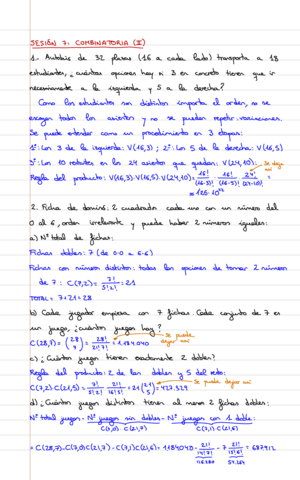 SESIÓN 7: COMBINATORIA (II)
1.- Autobús de 32 plazas (16 a cada lado) transporta a 18
estudiantes, ¿cuántas opciones hay si 3 en concreto tienen que ir
necesariamente a la izquierda y 5 a la derecha?
Como los estudiantes son distintos importa el orden, no se
escogen todos los asientos y no se pueden repetir: variaciones.
Se puede entender como un procedimiento en 3 etapas:
1º: Con 3 de la izquierda: V(16,3); 2º: Con 5 de la derecha: V(16,5)
3º: Con 10 restantes en los 24 asientos que quedan: V(24,10): Se deja así
Regla del producto: V(16,3)·V(16,5)·V(24,10) = 16!/(16-3)! · 16!/(16-5)! · 24!/(24-10)! =
2. Ficha de dominó: 2 cuadrados cada uno con un número del
0 al 6, orden irrelevante y puede haber 2 números iguales:
a) Nº total de fichas:
Fichas dobles: 7 (de 0-0 a 6-6)
Fichas con números distintos: todas las opciones de tomar 2 números
de 7: C(7,2) = 7!/5!2! = 21
TOTAL = 7+21 = 28
b) Cada jugador empieza con 7 fichas. Cada conjunto de 7 es
un juego, ¿cuántos juegos hay?
C(28,7) = (28 7) = 28!/21!7! = 1.184.040 se puede dejar así
c) ¿Cuántos juegos tienen exactamente 2 dobles?
Regla del producto: 2 de los dobles y 5 del resto:
C(7,2)·C(21,5) = 7!/5!2! · 21!/16!5! = 21(21 5) = 427.329 Se puede dejar así
d) ¿Cuántos juegos distintos tienen al menos 2 fichas dobles?
Nº total juegos - Nº juegos sin dobles - Nº juegos con 1 doble:
C(7,0)·C(21,7) C(7,1)·C(21,6)
= C(28,7) - C(7,0)C(21,7) - C(7,1)C(21,6) = 1184040 - 21!/14!7! - 7 21!/15!6! = 687.912
116.280 54.264